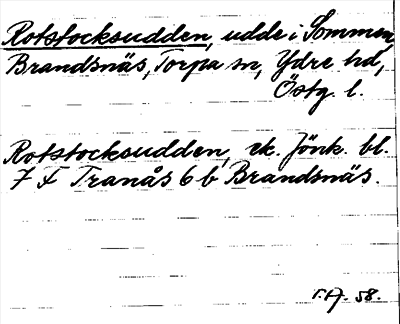 Rotstocksudden, udde i Sommen,
Brandsnäs, Torpa sn, Ydre hd,
Östg. l.
Rotstocksudden, ek. Jönk. bl.
7 F Tranås 6 b Brandsnäs.
T.A. 58.